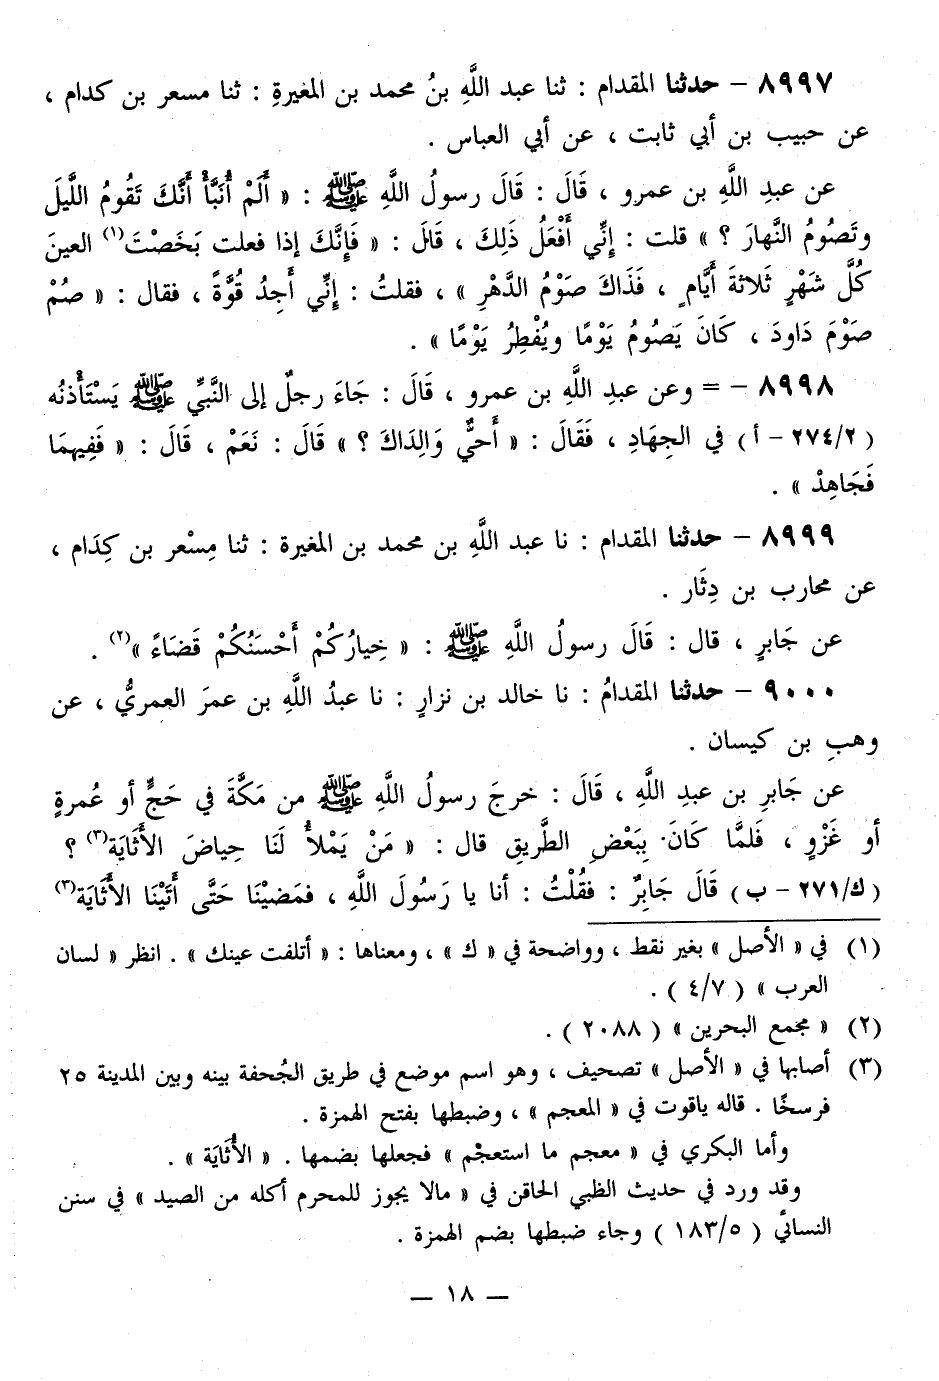 ٨٩٩٧ – حدثنا المقدام : ثنا عبد اللَّهِ بنُ محمد بن المغيرةِ : ثنا مسعر بن كدام ،
عن حبيب بن أبي ثابت ، عن أبي العباس .
عن عبدِ اللَّهِ بن عمرو ، قَالَ : قَالَ رسولُ اللَّهِ ﷺ : « أَلَمْ أُنَبَّأْ أَنَّكَ تَقُومُ اللَّيلَ
وتَصُومُ النَّهارَ ؟ » قلت : إِنِّي أَفْعَلُ ذَلِكَ ، قَالَ : « فَإِنَّكَ إذا فعلت بَخَصْتَ(١) العينَ
كُلَّ شَهْرٍ ثَلاثةَ أيَّامٍ ، فَذَاكَ صَوْمُ الدَّهْرِ » ، فقلتُ : إِنِّي أَجِدُ قُوَّةً ، فقال : « صُمْ
صَوْمَ دَاودَ ، كَانَ يَصُومُ يَوْمًا ويُفْطِرُ يَوْمًا » .
٨٩٩٨ – = وعن عبدِ اللَّهِ بن عمرو ، قَالَ : جَاءَ رجلٌ إلى النَّبيِّ ﷺ يَسْتَأْذنُه
( ٢٧٤/٢ – أ ) في الجِهَادِ ، فَقَالَ : « أَحيٌّ وَالِدَاكَ ؟ » قَالَ : نَعَمْ ، قَالَ : « فَفِيهمَا
فَجَاهِدْ » .
٨٩٩٩ – حدثنا المقدام : نا عبد اللَّهِ بن محمد بن المغيرة : ثنا مِسْعر بن كِدَام ،
عن محارب بن دِثَار .
عن جَابرٍ ، قال : قَالَ رسولُ اللَّهِ ﷺ : « خِيارُكُمْ أَحْسَنُكُمْ قَضَاءً »(٢) .
٩٠٠٠ – حدثنا المقدامُ : نا خالد بن نزارٍ : نا عبدُ اللَّهِ بن عمرَ العمريُّ ، عن
وهبِ بن كيسان .
عن جَابرِ بن عبدِ اللَّهِ ، قَالَ : خرجَ رسولُ اللَّهِ ﷺ من مَكَّةَ في حَجٍّ أو عُمرةٍ
أو غَزْوٍ ، فَلمَّا كَانَ بِبَعْضِ الطَّريقِ قال : « مَنْ يَمْلأُ لَنَا حِياضَ الأَثَايَة(٣) ؟
( ك/٢٧١ – ب ) قَالَ جَابرٌ : فقُلْتُ : أنا يا رَسُولَ اللَّهِ ، فمَضيْنَا حَتَّى أَتَيْنَا الأَثَايَة(٣)
(١) في « الأصل » بغير نقط ، وواضحة في « ك » ، ومعناها : « أتلفت عينك » . انظر « لسان
العرب » ( ٤/٧ ) .
(٢) « مجمع البحرين » ( ٢٠٨٨ ) .
(٣) أصابها في « الأصل » تصحيف ، وهو اسم موضع في طريق الجُحفة بينه وبين المدينة ٢٥
فرسخًا . قاله ياقوت في « المعجم » ، وضبطها بفتح الهمزة .
وأما البكري في « معجم ما استعجْم » فجعلها بضمها . « الأُثَايَة » .
وقد ورد في حديث الظبي الحاقن في « مالا يجوز للمحرم أكله من الصيد » في سنن
النسائي ( ١٨٣/٥ ) وجاء ضبطها بضم الهمزة .
— ١٨ —